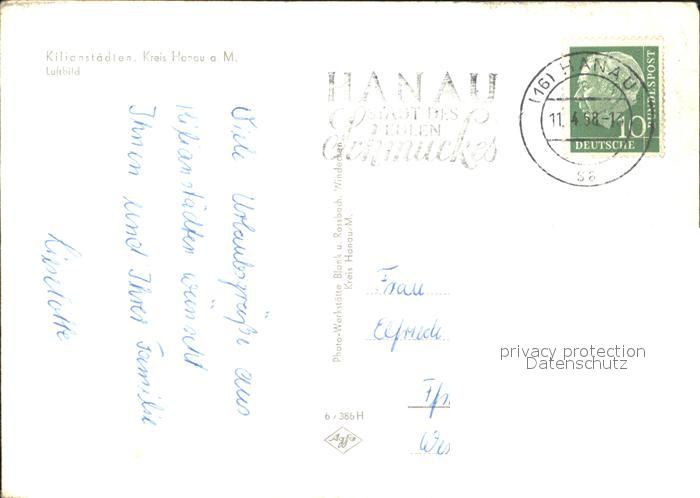 Kilianstädten, Kreis Hanau a. M.
Luftbild
HANAU
STADT DES
EDLEN
Schmuckes
(16) HANAU
11. 4. 58-1
sa
10
DEUTSCHE
BUNDESPOST
Viele Urlaubsgrüße aus
Kilianstädten wünscht
Ihnen und Ihrer Familie
Liselotte
Photo-Werkstätte Blank u. Rossbach, Windecken
Kreis Hanau/M.
Frau
Elfriede
Ffm
Wes
6/386H
privacy protection
Datenschutz